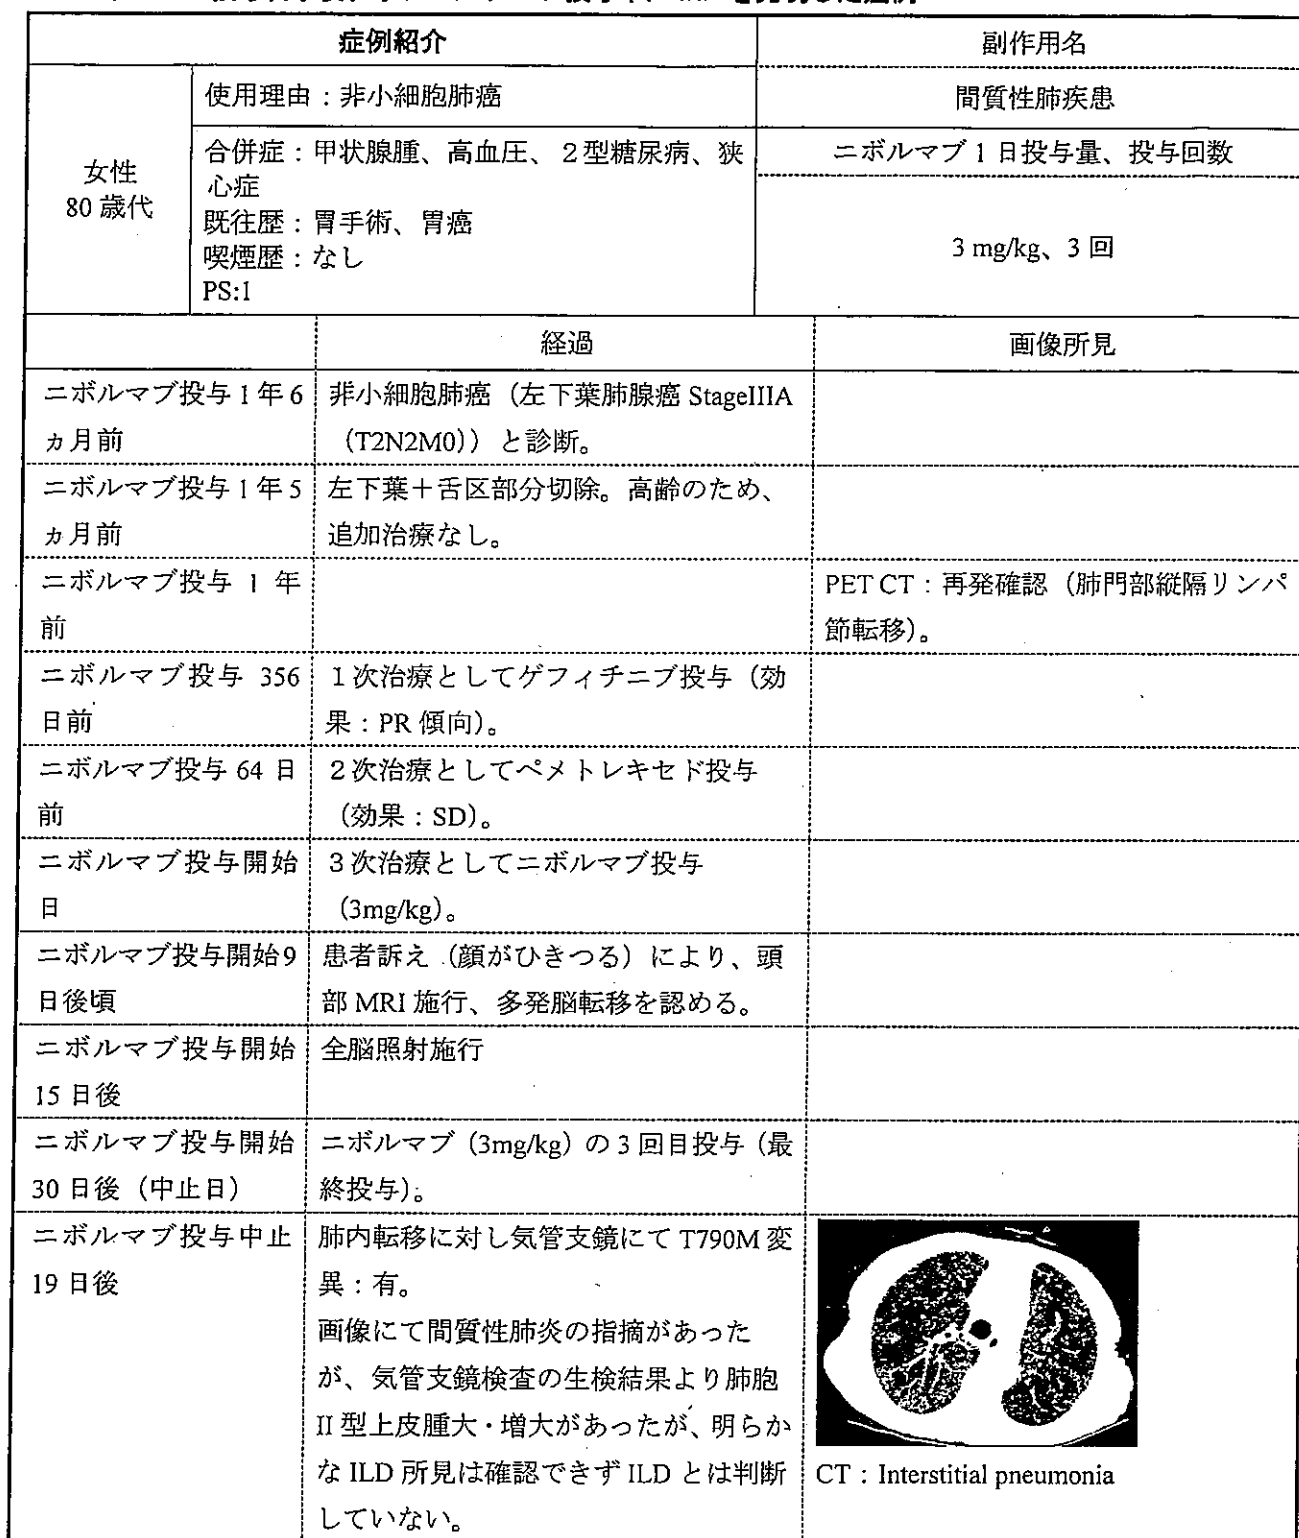 症例紹介
副作用名
女性
80 歳代
使用理由：非小細胞肺癌
間質性肺疾患
合併症：甲状腺腫、高血圧、２型糖尿病、狭
心症
既往歴：胃手術、胃癌
喫煙歴：なし
PS:1
ニボルマブ 1 日投与量、投与回数
3 mg/kg、3 回
経過
画像所見
ニボルマブ投与 1 年 6
ヵ月前
非小細胞肺癌（左下葉肺腺癌 StageIIIA
（T2N2M0））と診断。
ニボルマブ投与 1 年 5
ヵ月前
左下葉＋舌区部分切除。高齢のため、
追加治療なし。
ニボルマブ投与 1 年
前
PET CT：再発確認（肺門部縦隔リンパ
節転移）。
ニボルマブ投与 356
日前
１次治療としてゲフィチニブ投与（効
果：PR 傾向）。
ニボルマブ投与 64 日
前
２次治療としてペメトレキセド投与
（効果：SD）。
ニボルマブ投与開始
日
３次治療としてニボルマブ投与
（3mg/kg）。
ニボルマブ投与開始9
日後頃
患者訴え（顔がひきつる）により、頭
部 MRI 施行、多発脳転移を認める。
ニボルマブ投与開始
15 日後
全脳照射施行
ニボルマブ投与開始
30 日後（中止日）
ニボルマブ（3mg/kg）の 3 回目投与（最
終投与）。
ニボルマブ投与中止
19 日後
肺内転移に対し気管支鏡にて T790M 変
異：有。
画像にて間質性肺炎の指摘があった
が、気管支鏡検査の生検結果より肺胞
II 型上皮腫大・増大があったが、明らか
な ILD 所見は確認できず ILD とは判断
していない。
CT：Interstitial pneumonia